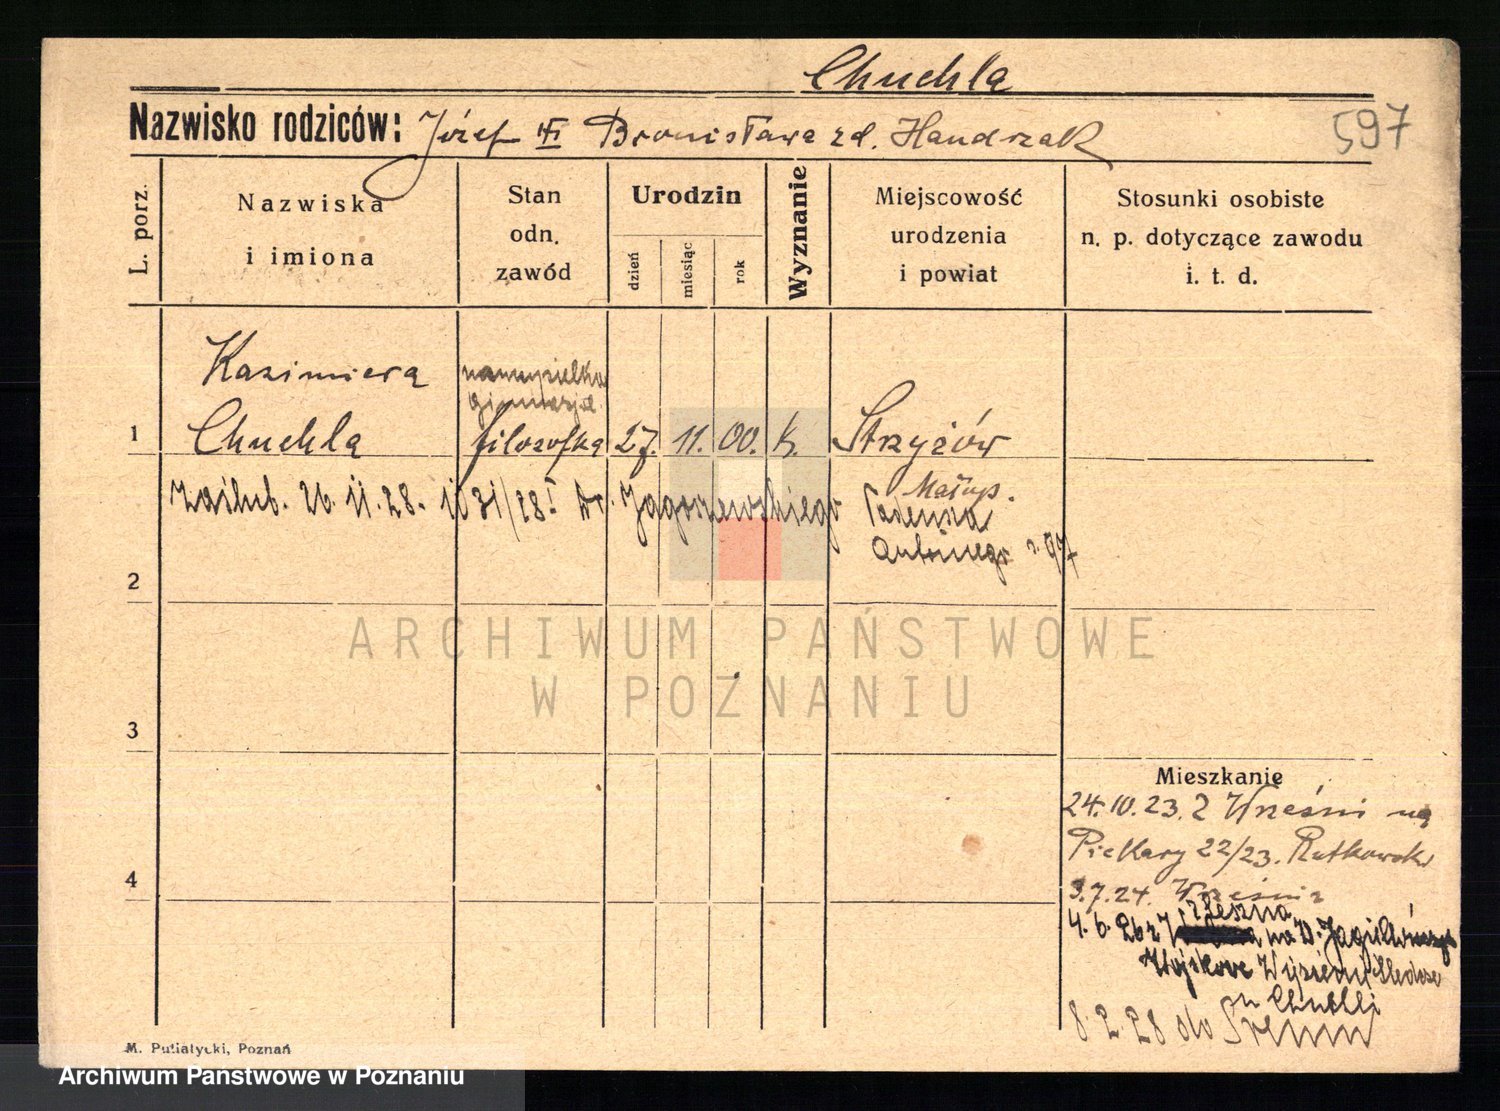 Chuchla
Nazwisko rodziców: Józef Bronisława zd. Handrzak
597
L. porz.
Nazwiska
i imiona
Stan
odn.
zawód
Urodzin
dzień
miesiąc
rok
Wyznanie
Miejscowość
urodzenia
i powiat
Stosunki osobiste
n. p. dotyczące zawodu
i. t. d.
Kazimiera nauczycielka
gimnazjal.
1 Chuchla filozofka 27. 11. 00. k. Strzyżów
Małop.
zaślub. 26.11.28. 1031/28 I Dr. Jagoszewskiego Tadeusza
Antoniego 97
2
3
4
ARCHIWUM PAŃSTWOWE
W POZNANIU
Mieszkanie
24.10.23. z Wrześni na
Piekary 22/23. Rutkowski
3.7.24. Września
z Leszna
4.6.26 z na D.
8.2.28 do Śremu
M. Putiatycki, Poznań
Archiwum Państwowe w Poznaniu